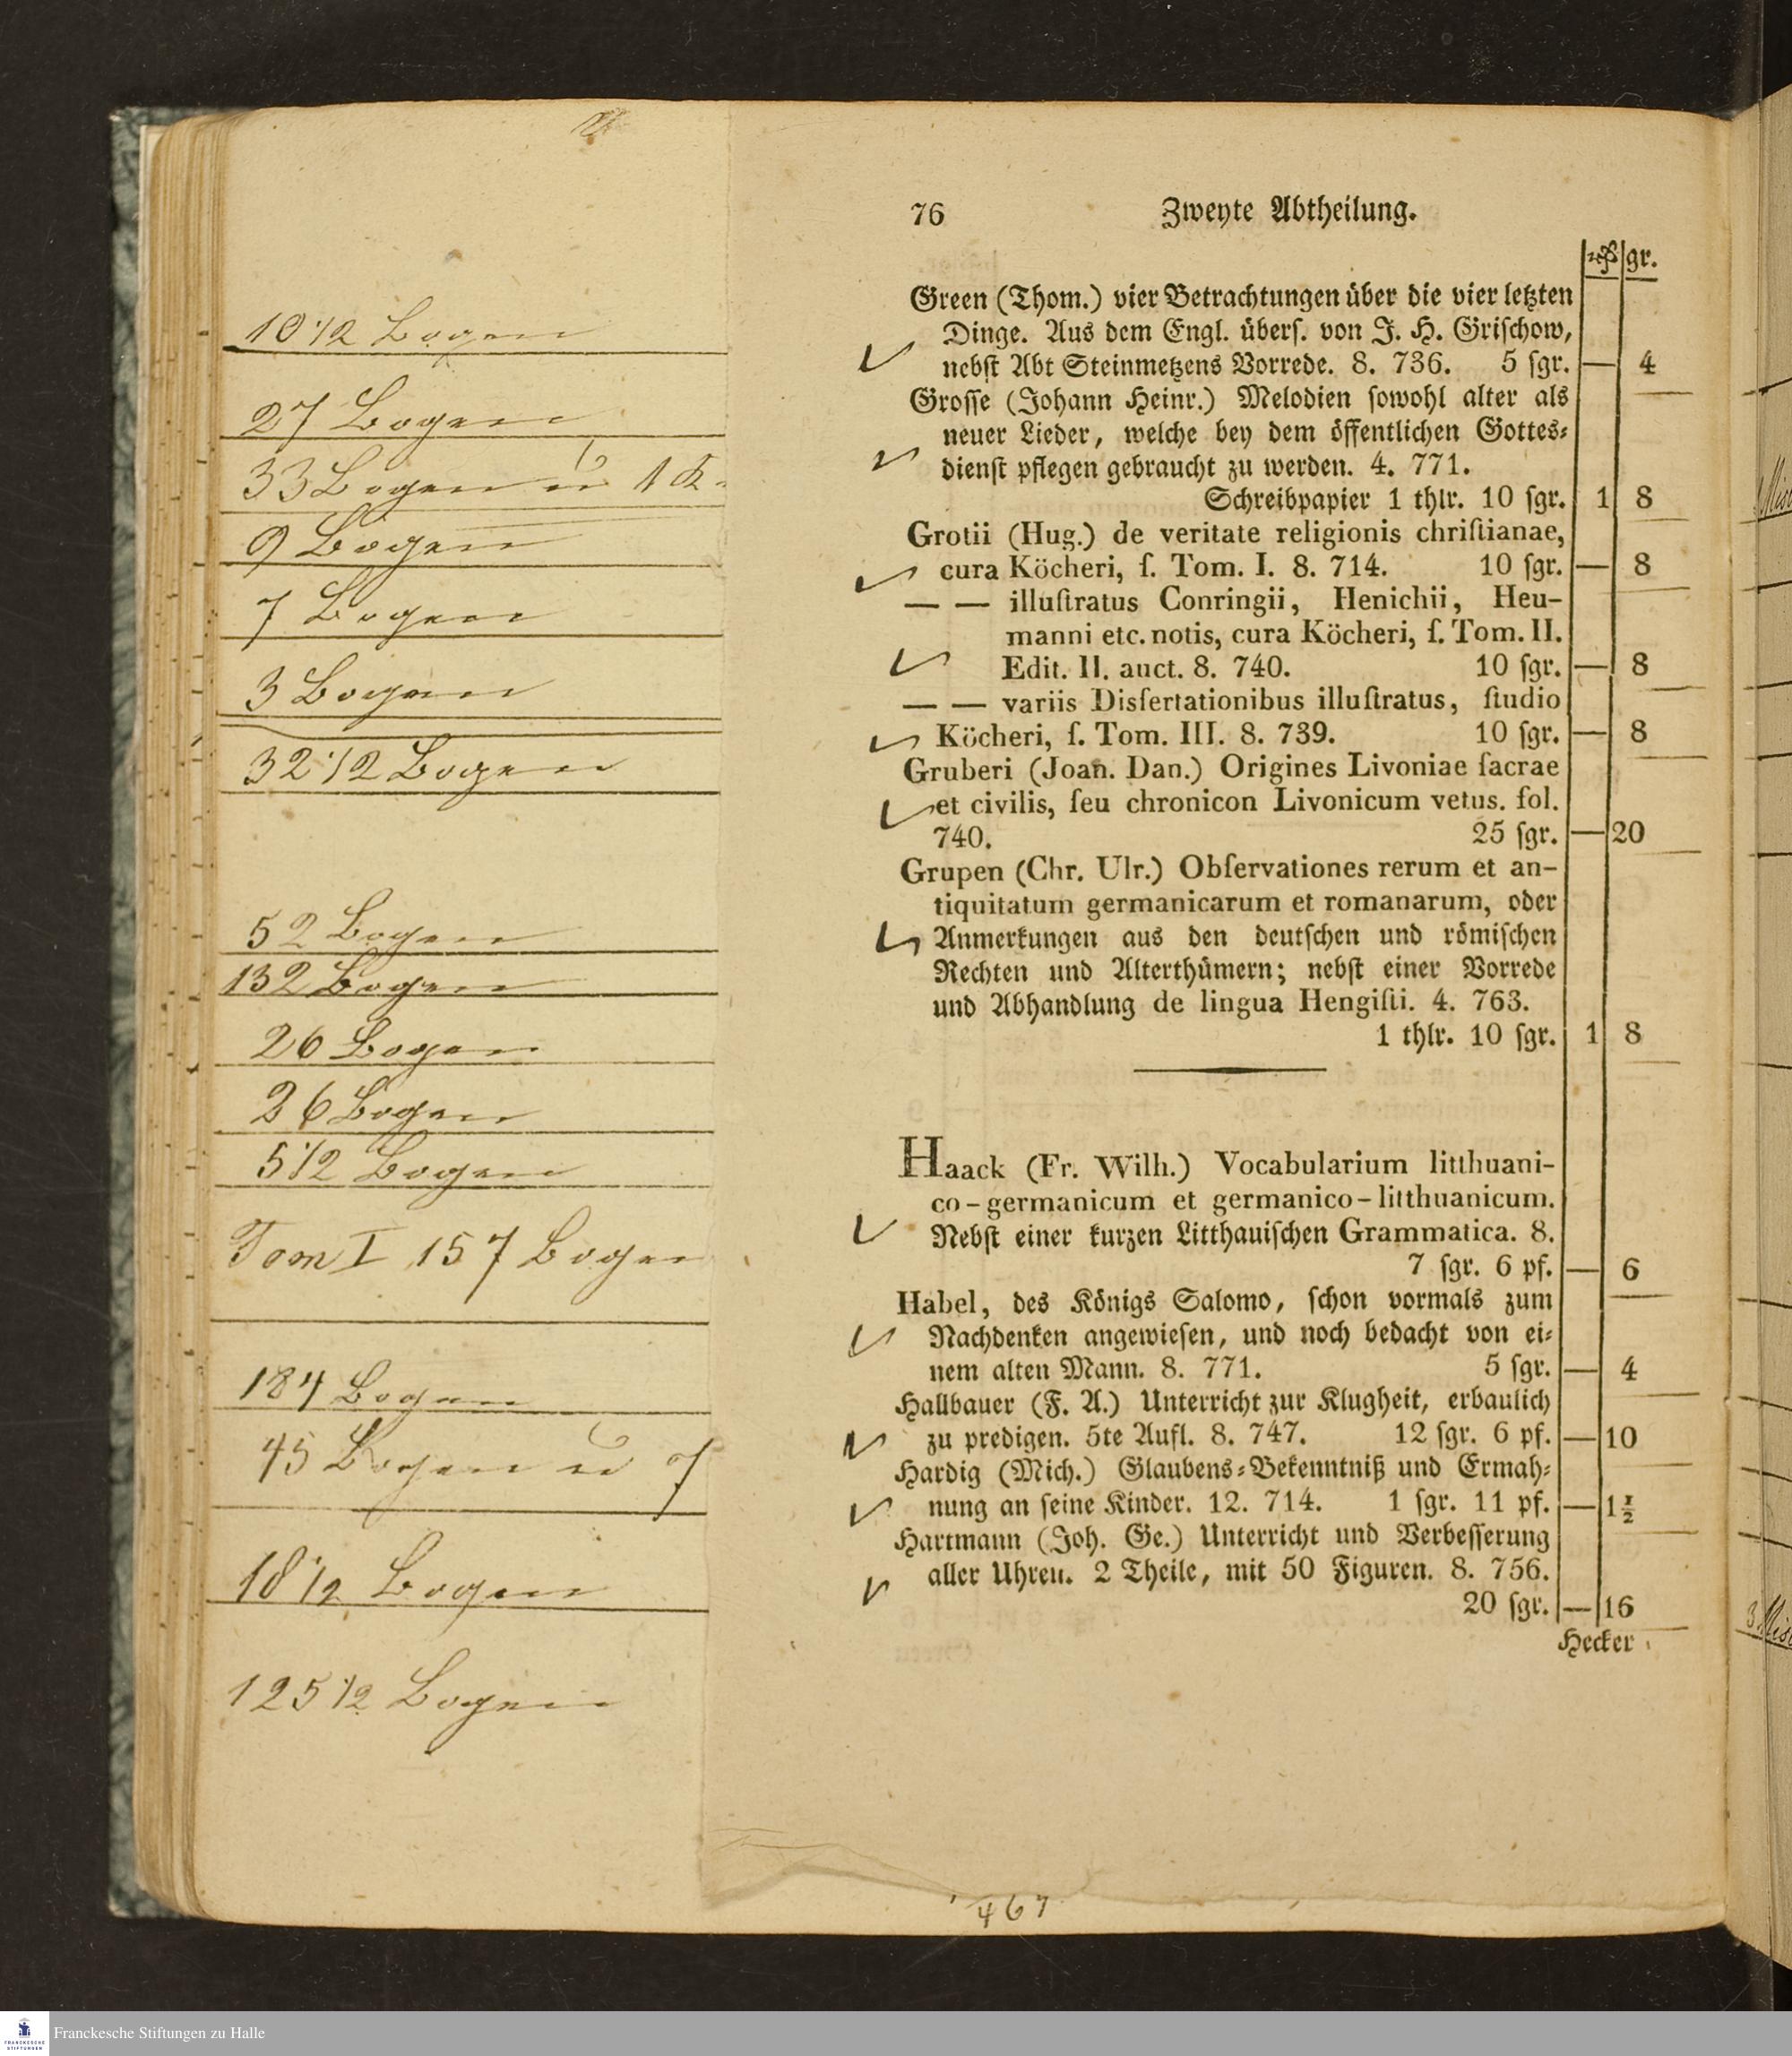 10 1/2 Bogen
27 Bogen
33 Bogen u 1
9 Bogen
7 Bogen
3 Bogen
32 1/2 Bogen
52 Bogen
132 Bogen
26 Bogen
26 Bogen
5 1/2 Bogen
Tom I 157 Bogen
184 Bogen
45 Bogen u
18 1/2 Bogen
125 1/2 Bogen
76 Zweyte Abtheilung.
gr.
Green (Thom.) vier Betrachtungen über die vier letzten
Dinge. Aus dem Engl. überſ. von J. H. Griſchow,
nebſt Abt Steinmetzens Vorrede. 8. 736. 5 ſgr. — 4
Groſſe (Johann Heinr.) Melodien ſowohl alter als
neuer Lieder, welche bey dem öffentlichen Gottes⸗
dienſt pflegen gebraucht zu werden. 4. 771.
Schreibpapier 1 thlr. 10 ſgr. 1 8
Grotii (Hug.) de veritate religionis chriſtianae,
cura Köcheri, ſ. Tom. I. 8. 714. 10 ſgr. — 8
— — illuſtratus Conringii, Henichii, Heu-
manni etc. notis, cura Köcheri, ſ. Tom. II.
Edit. II. auct. 8. 740. 10 ſgr. — 8
— — variis Disſertationibus illuſtratus, ſtudio
Köcheri, ſ. Tom. III. 8. 739. 10 ſgr. — 8
Gruberi (Joan. Dan.) Origines Livoniae ſacrae
et civilis, ſeu chronicon Livonicum vetus. fol.
740. 25 ſgr. — 20
Grupen (Chr. Ulr.) Obſervationes rerum et an-
tiquitatum germanicarum et romanarum, oder
Anmerkungen aus den deutſchen und römiſchen
Rechten und Alterthümern; nebſt einer Vorrede
und Abhandlung de lingua Hengiſti. 4. 763.
1 thlr. 10 ſgr. 1 8
Haack (Fr. Wilh.) Vocabularium litthuani-
co-germanicum et germanico-litthuanicum.
Nebſt einer kurzen Litthauiſchen Grammatica. 8.
7 ſgr. 6 pf. — 6
Habel, des Königs Salomo, ſchon vormals zum
Nachdenken angewieſen, und noch bedacht von ei⸗
nem alten Mann. 8. 771. 5 ſgr. — 4
Hallbauer (F. A.) Unterricht zur Klugheit, erbaulich
zu predigen. 5te Aufl. 8. 747. 12 ſgr. 6 pf. — 10
Hardig (Mich.) Glaubens⸗Bekenntniß und Ermah⸗
nung an ſeine Kinder. 12. 714. 1 ſgr. 11 pf. — 1½
Hartmann (Joh. Ge.) Unterricht und Verbeſſerung
aller Uhren. 2 Theile, mit 50 Figuren. 8. 756.
20 ſgr. — 16
Hecker
467
Franckesche Stiftungen zu Halle